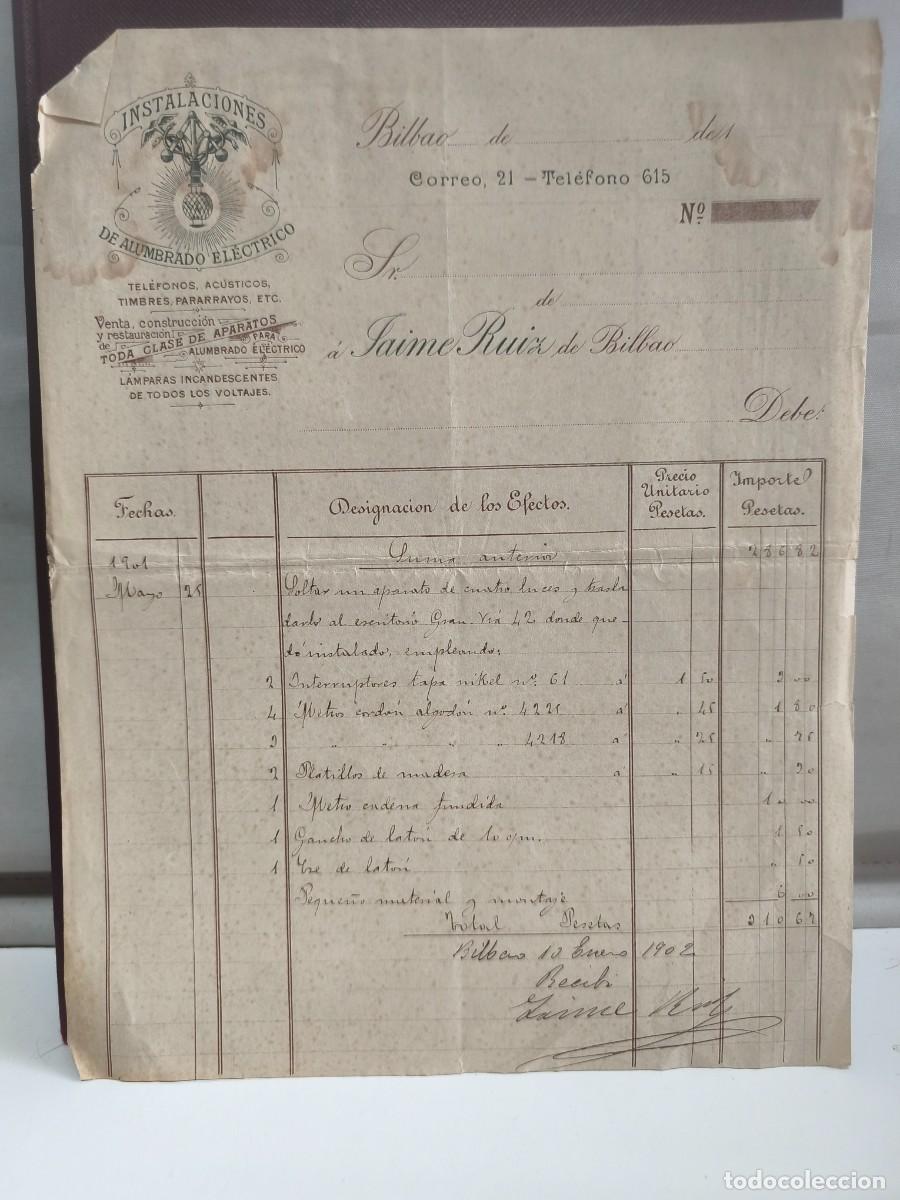 INSTALACIONES
DE ALUMBRADO ELÉCTRICO
TELÉFONOS, ACÚSTICOS,
TIMBRES, PARARRAYOS, ETC.
Venta, construcción
y restauración
de TODA CLASE DE APARATOS
PARA
ALUMBRADO ELÉCTRICO
LÁMPARAS INCANDESCENTES
DE TODOS LOS VOLTAJES.
Bilbao de de 1
Correo, 21 – Teléfono 615
Nº
Sr.
de
á Jaime Ruiz de Bilbao
Debe:
Fechas. Designacion de los Efectos. Precio Unitario Pesetas. Importe Pesetas.
1901 Suma anterior 82
Mayo 25 Soltar un aparato de cuatro luces y trasla
darlo al escritorio Gran Vía 42 donde que-
dó instalado, empleando;
2 Interruptores tapa nikel nº 61 a 1 50
4 Metros cordón algodón nº 4225 a " 45 1 80
4218 a " 25 " 75
2 Platillos de madera a " 15
1 Metro cadena fundida 00
1 Gancho de latón de 10 c/m. 1 50
1 de latón " 50
Pequeño material y montaje 6 00
Total Pesetas
Bilbao 10 Enero 1902
Recibi
Jaime Ruiz
todocoleccion